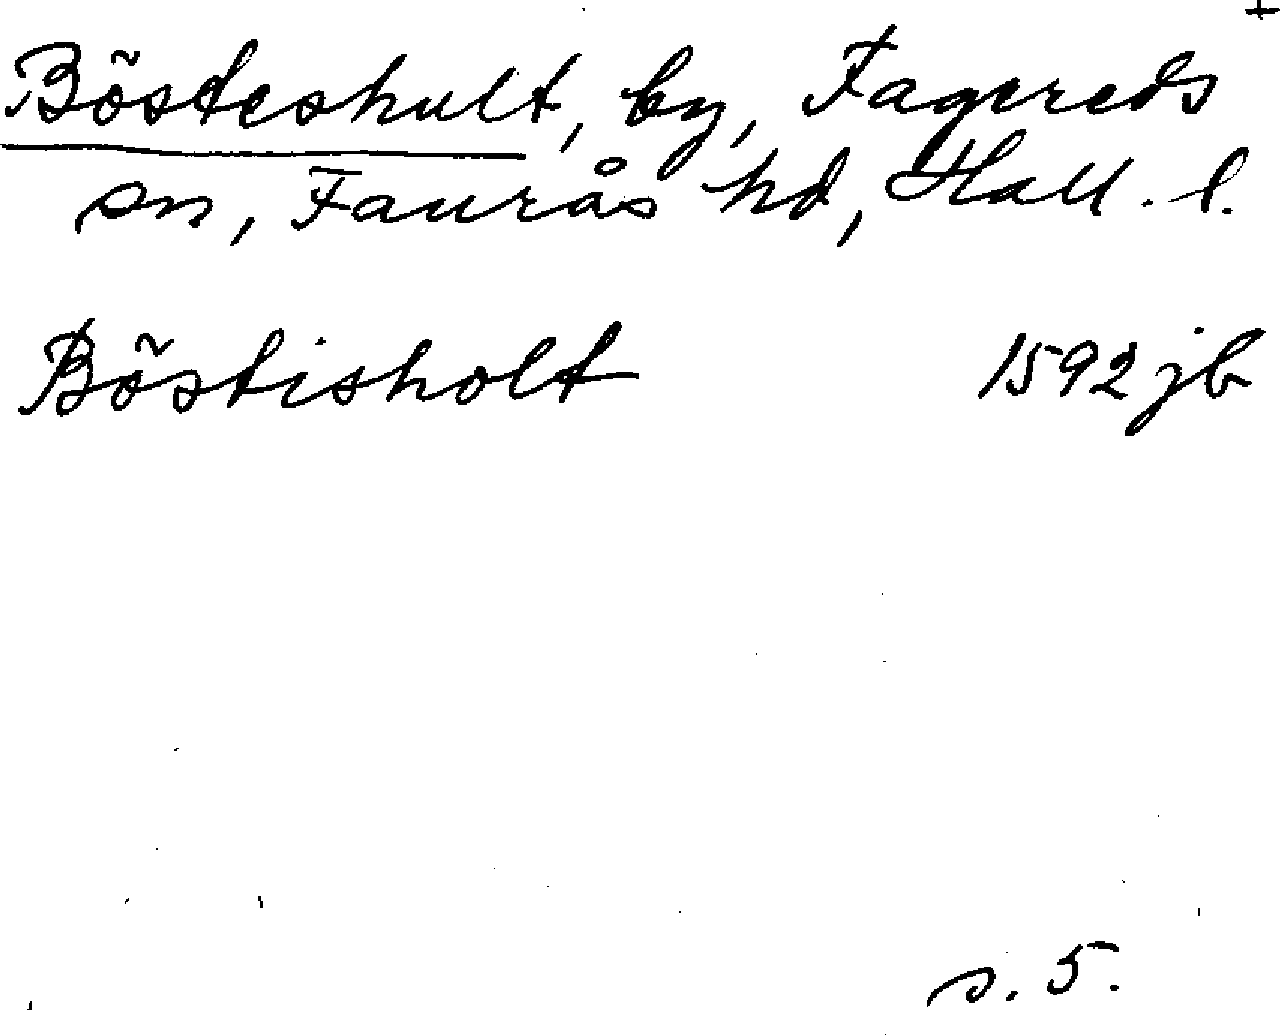 +
Bösteshult, by, Fagereds
sn, Faurås hd, Hall. l.
Böstisholt 1592 jb
s. 5.